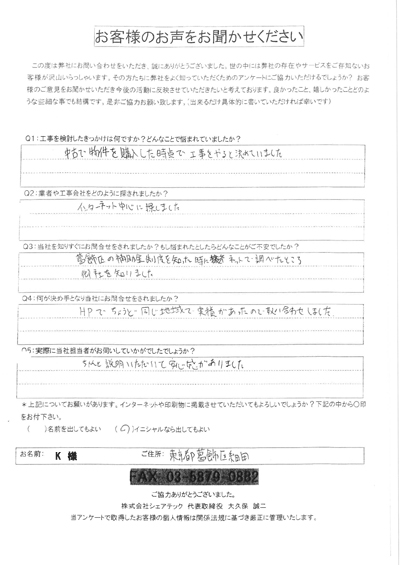 お客様のお声をお聞かせください
この度は弊社にお問い合わせをいただき、誠にありがとうございました。世の中には弊社の存在やサービスをご存知ないお
客様が沢山いらっしゃいます。その方たちに弊社をよく知っていただくためのアンケートにご協力いただけるでしょうか？お客
様のご意見をお聞かせいただき今後の活動に反映させていただきたいと考えております。良かったこと、嬉しかったことどのよ
うな些細な事でも結構です。是非ご協力お願い致します。（出来るだけ具体的に書いていただければ幸いです）
Q1：工事を検討したきっかけは何ですか？どんなことで悩まれていましたか？
中古で物件を購入した時点で工事をやると決めていました
Q2：業者や工事会社をどのように探されましたか？
インターネット中心に探しました
Q3：当社を知りすぐにお問合せをされましたか？もし悩まれたとしたらどんなことがご不安でしたか？
葛飾区の補助金制度を知った時にネットで調べたところ
御社を知りました
Q4：何が決め手となり当社にお問合せをされましたか？
HPでちょうど同じ地域で実績があったので問い合わせしました
Q5：実際に当社担当者がお伺いしていかがでしたでしょうか？
ちゃんと説明いただいて安心感がありました
＊上記についてお願いがあります。インターネットや印刷物に掲載させていただいてもよろしいでしょうか？下記の中から〇印
をお付下さい。
（　）名前を出してもよい　（〇）イニシャルなら出してもよい
お名前：　K 様　ご住所：　東京都葛飾区
FAX 03-5879-0882
ご協力ありがとうございました。
株式会社シェアテック 代表取締役 大久保 誠二
当アンケートで取得したお客様の個人情報は関係法規に基づき厳正に管理いたします。